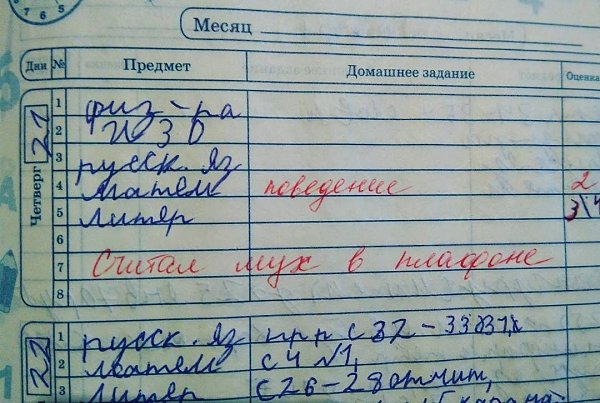 Месяц
Дни № Предмет Домашнее задание Оценка
Четверг 21
1 физ-ра
2 ИЗО
3 русск. яз
4 матем поведение 2
5 литер 3\4
6
7 Считал мух в плафоне
8
22
1 русск. яз с 32-33
2 матем с 4 №1,
3 литер с 26-28